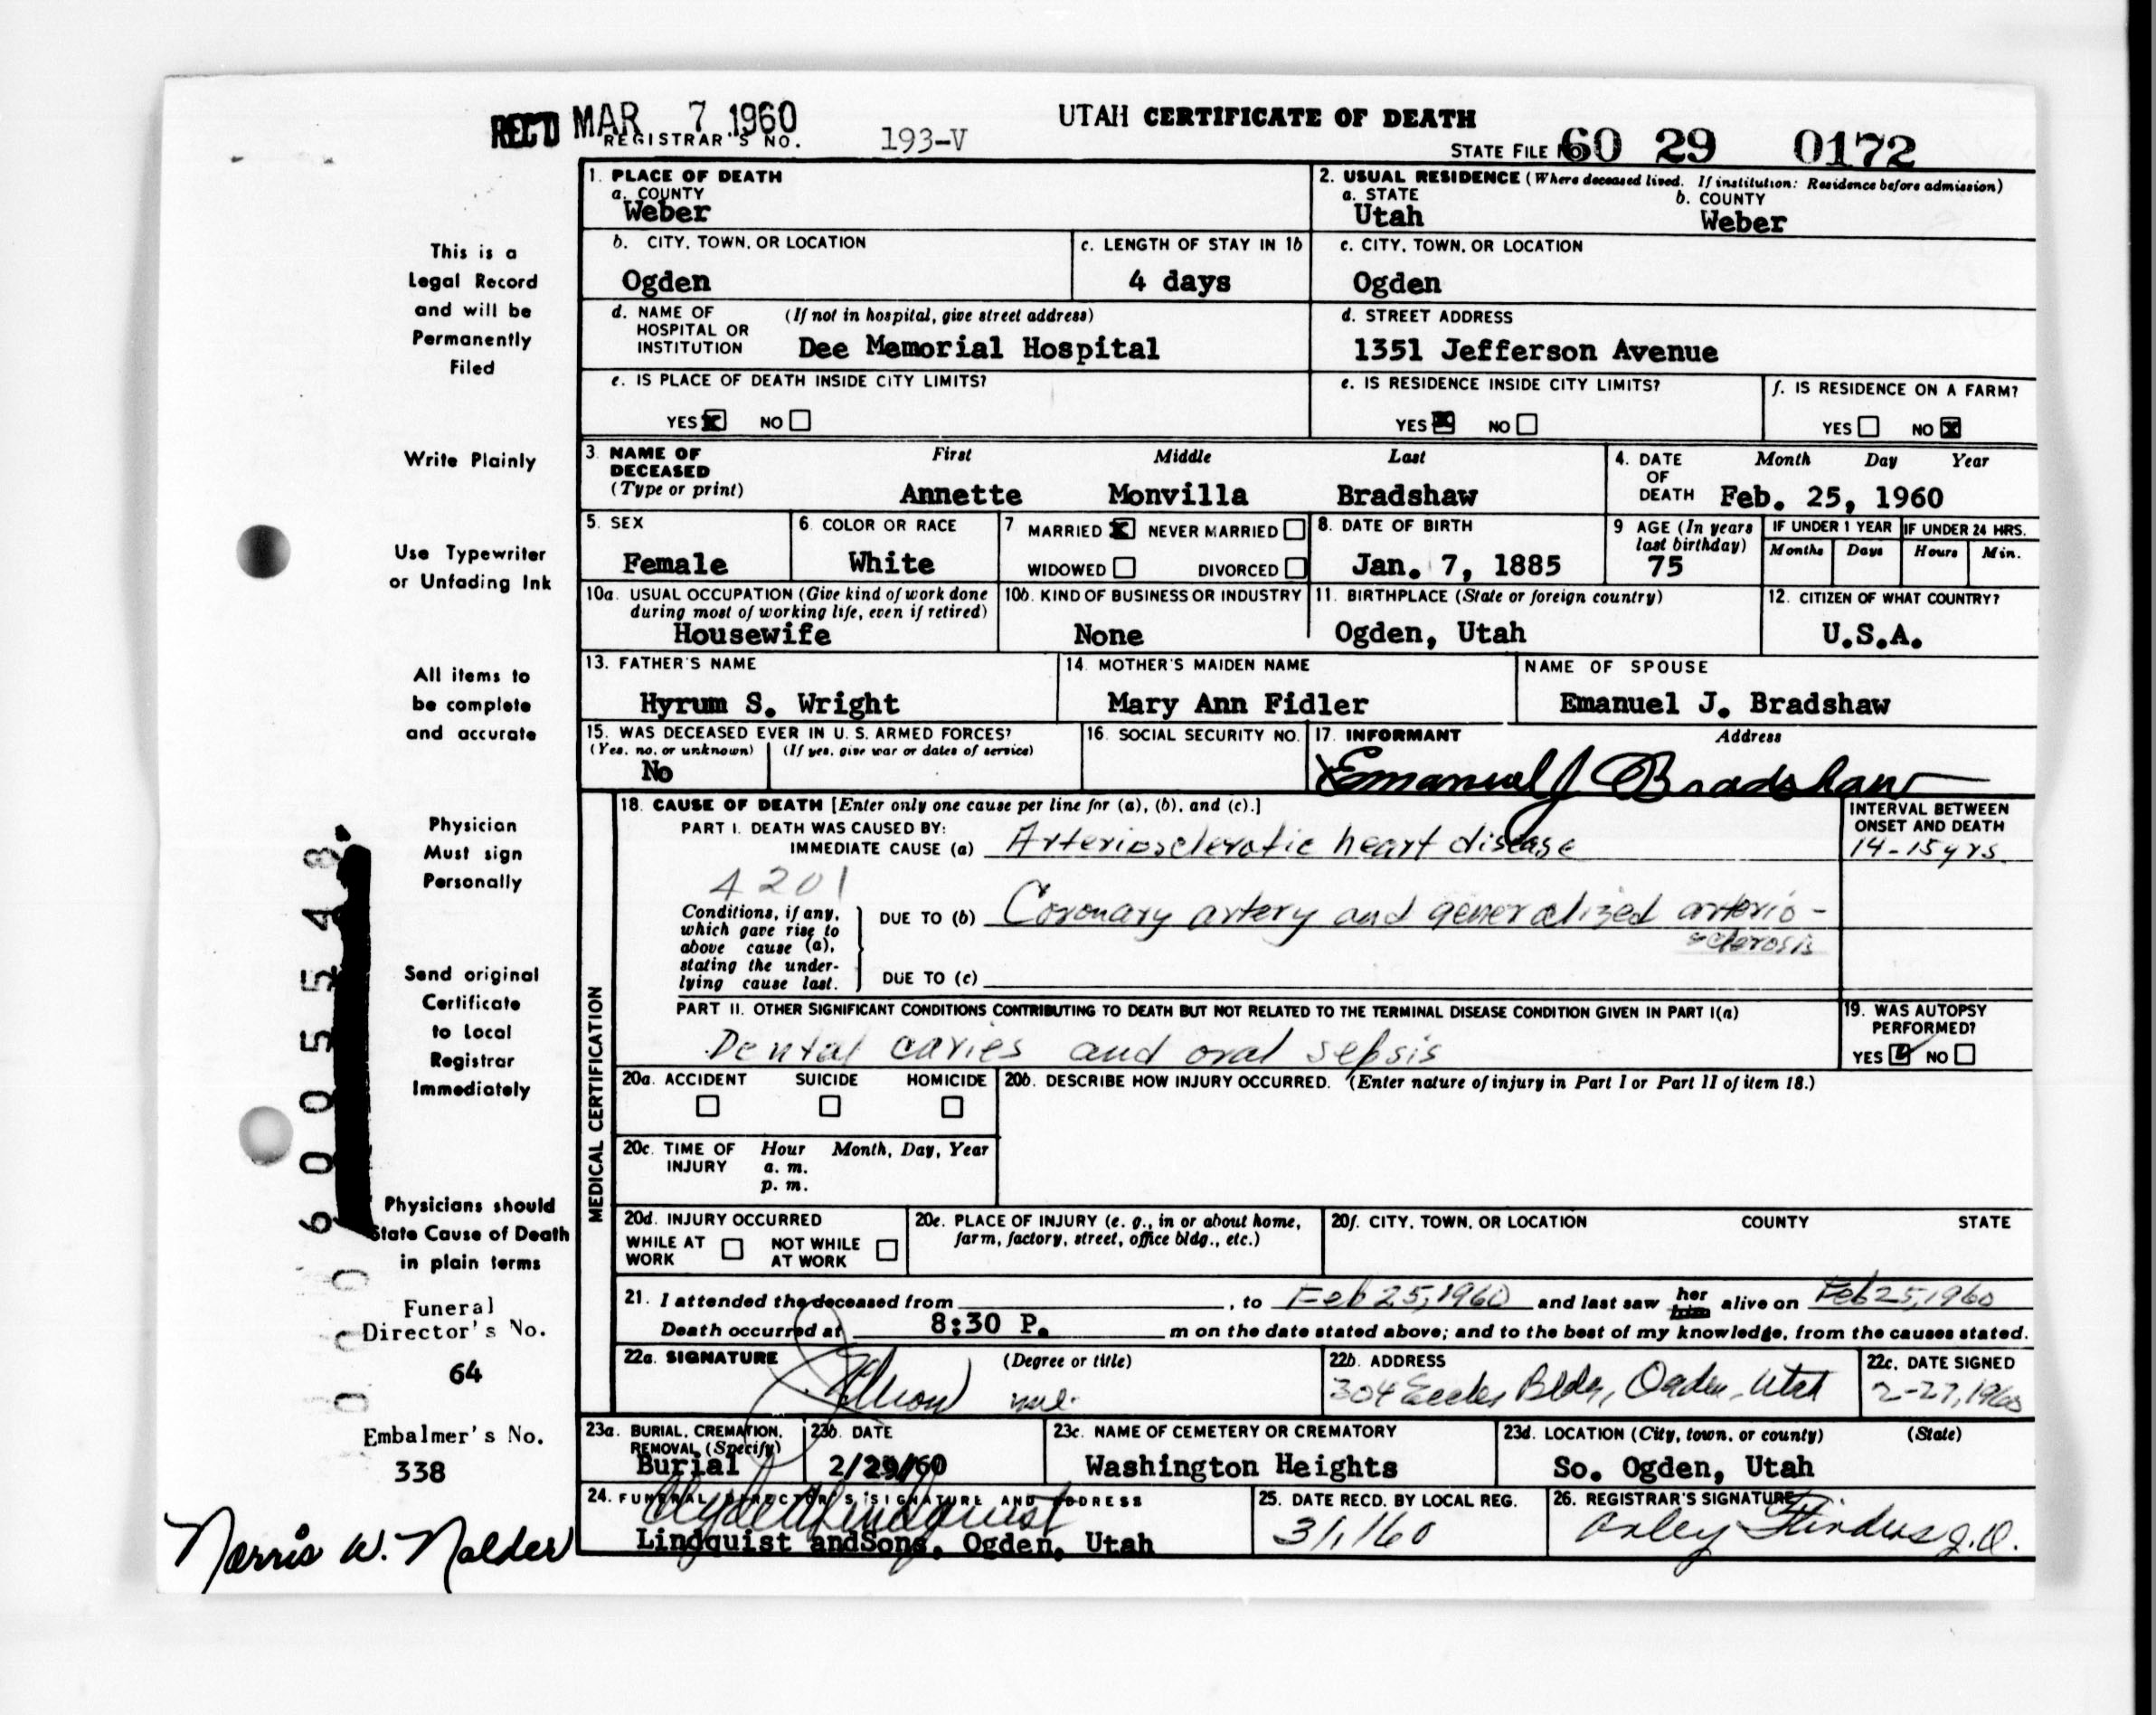 REC'D MAR 7 1960
UTAH CERTIFICATE OF DEATH
REGISTRAR'S NO. 193-V
STATE FILE NO. 60 29 0172
This is a
Legal Record
and will be
Permanently
Filed
Write Plainly
Use Typewriter
or Unfading Ink
All items to
be complete
and accurate
Physician
Must sign
Personally
Send original
Certificate
to Local
Registrar
Immediately
Physicians should
State Cause of Death
in plain terms
Funeral
Director's No.
64
Embalmer's No.
338
Norris W. Nalder
6005548
1. PLACE OF DEATH
a. COUNTY
Weber
2. USUAL RESIDENCE (Where deceased lived. If institution: Residence before admission)
a. STATE b. COUNTY
Utah Weber
b. CITY, TOWN, OR LOCATION
Ogden
c. LENGTH OF STAY IN 1b
4 days
c. CITY, TOWN, OR LOCATION
Ogden
d. NAME OF (If not in hospital, give street address)
HOSPITAL OR
INSTITUTION Dee Memorial Hospital
d. STREET ADDRESS
1351 Jefferson Avenue
e. IS PLACE OF DEATH INSIDE CITY LIMITS?
YES NO
e. IS RESIDENCE INSIDE CITY LIMITS?
YES NO
f. IS RESIDENCE ON A FARM?
YES NO
3. NAME OF First Middle Last
DECEASED
(Type or print) Annette Monvilla Bradshaw
4. DATE Month Day Year
OF
DEATH Feb. 25, 1960
5. SEX
Female
6 COLOR OR RACE
White
7 MARRIED NEVER MARRIED
WIDOWED DIVORCED
8. DATE OF BIRTH
Jan. 7, 1885
9 AGE (In years
last birthday)
75
IF UNDER 1 YEAR IF UNDER 24 HRS.
Months Days Hours Min.
10a. USUAL OCCUPATION (Give kind of work done
during most of working life, even if retired)
Housewife
10b. KIND OF BUSINESS OR INDUSTRY
None
11. BIRTHPLACE (State or foreign country)
Ogden, Utah
12. CITIZEN OF WHAT COUNTRY?
U.S.A.
13. FATHER'S NAME
Hyrum S. Wright
14. MOTHER'S MAIDEN NAME
Mary Ann Fidler
NAME OF SPOUSE
Emanuel J. Bradshaw
15. WAS DECEASED EVER IN U. S. ARMED FORCES?
(Yes, no, or unknown) (If yes, give war or dates of service)
No
16. SOCIAL SECURITY NO.
17. INFORMANT Address
Emanuel J Bradshaw
MEDICAL CERTIFICATION
18. CAUSE OF DEATH [Enter only one cause per line for (a), (b), and (c).]
PART I. DEATH WAS CAUSED BY:
IMMEDIATE CAUSE (a) Arteriosclerotic heart disease
INTERVAL BETWEEN
ONSET AND DEATH
14-15 yrs
4201
Conditions, if any,
which gave rise to
above cause (a),
stating the under-
lying cause last.
DUE TO (b) Coronary artery and generalized arterio-
sclerosis
DUE TO (c)
PART II. OTHER SIGNIFICANT CONDITIONS CONTRIBUTING TO DEATH BUT NOT RELATED TO THE TERMINAL DISEASE CONDITION GIVEN IN PART I(a)
Dental caries and oral sepsis
19. WAS AUTOPSY
PERFORMED?
YES NO
20a. ACCIDENT SUICIDE HOMICIDE
20b. DESCRIBE HOW INJURY OCCURRED. (Enter nature of injury in Part I or Part II of item 18.)
20c. TIME OF Hour Month, Day, Year
INJURY a. m.
p. m.
20d. INJURY OCCURRED
WHILE AT NOT WHILE
WORK AT WORK
20e. PLACE OF INJURY (e. g., in or about home,
farm, factory, street, office bldg., etc.)
20f. CITY, TOWN, OR LOCATION COUNTY STATE
21. I attended the deceased from , to Feb 25, 1960 and last saw her him alive on Feb 25, 1960
Death occurred at 8:30 P. m on the date stated above; and to the best of my knowledge, from the causes stated.
22a. SIGNATURE (Degree or title)
22b. ADDRESS
304 Eccles Bldg, Ogden, Utah
22c. DATE SIGNED
2-27, 1960
23a. BURIAL, CREMATION,
REMOVAL (Specify)
Burial
23b. DATE
2/29/60
23c. NAME OF CEMETERY OR CREMATORY
Washington Heights
23d. LOCATION (City, town, or county) (State)
So. Ogden, Utah
24. FUNERAL DIRECTOR'S SIGNATURE AND ADDRESS
Lindquist andSons, Ogden, Utah
25. DATE RECD. BY LOCAL REG.
3/1/60
26. REGISTRAR'S SIGNATURE